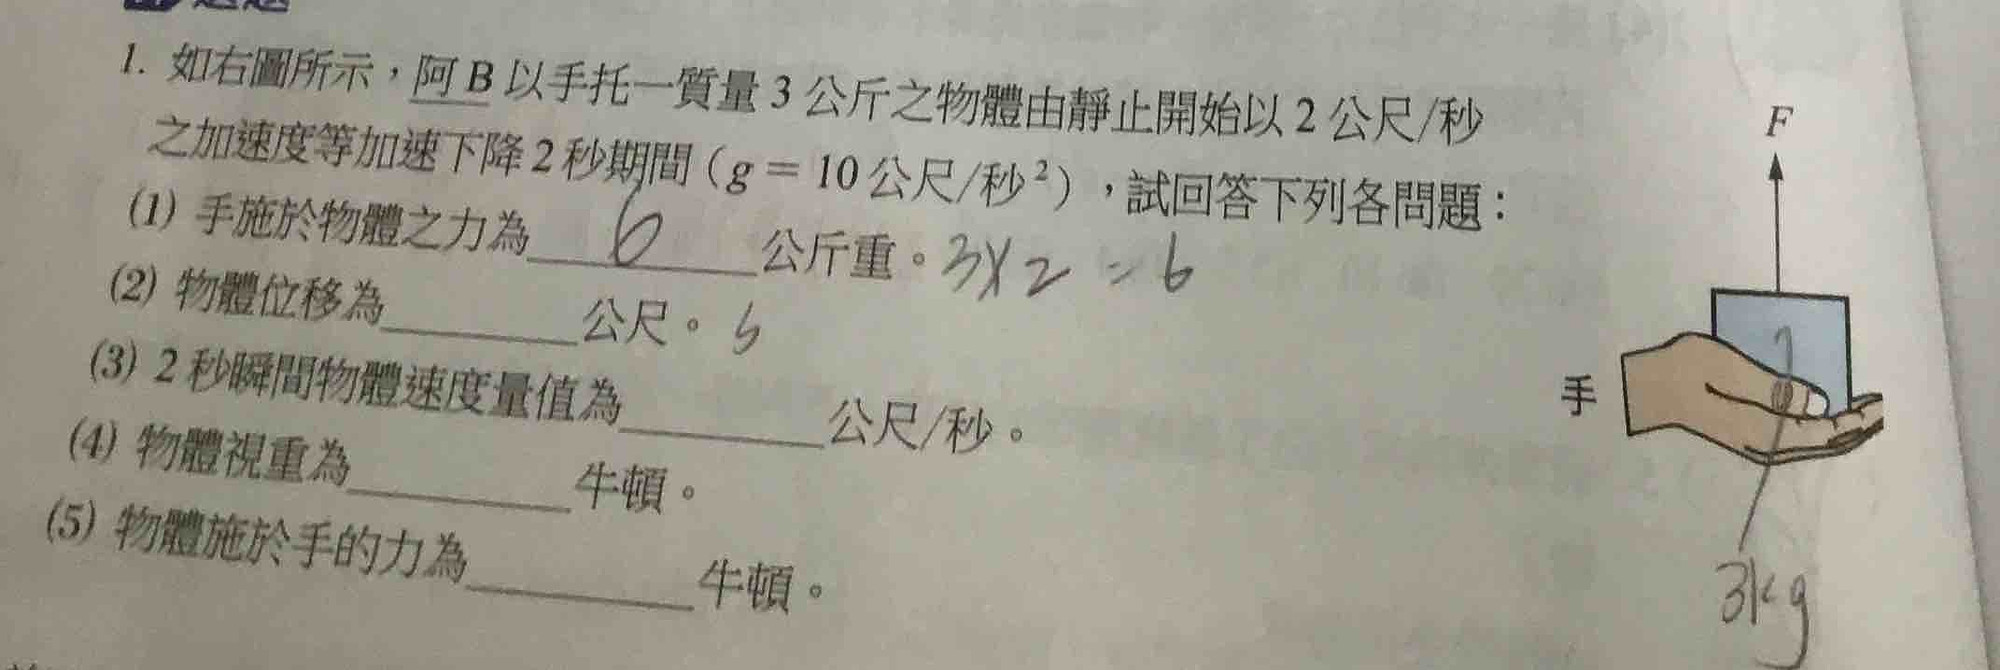 1. 如右圖所示，阿B以手托一質量3公斤之物體由靜止開始以2公尺/秒
之加速度等加速下降2秒期間（g＝10公尺/秒²），試回答下列各問題：
(1) 手施於物體之力為 6 公斤重。3×2=6
(2) 物體位移為______公尺。
(3) 2秒瞬間物體速度量值為______公尺/秒。
(4) 物體視重為______牛頓。
(5) 物體施於手的力為______牛頓。
F
手
3kg